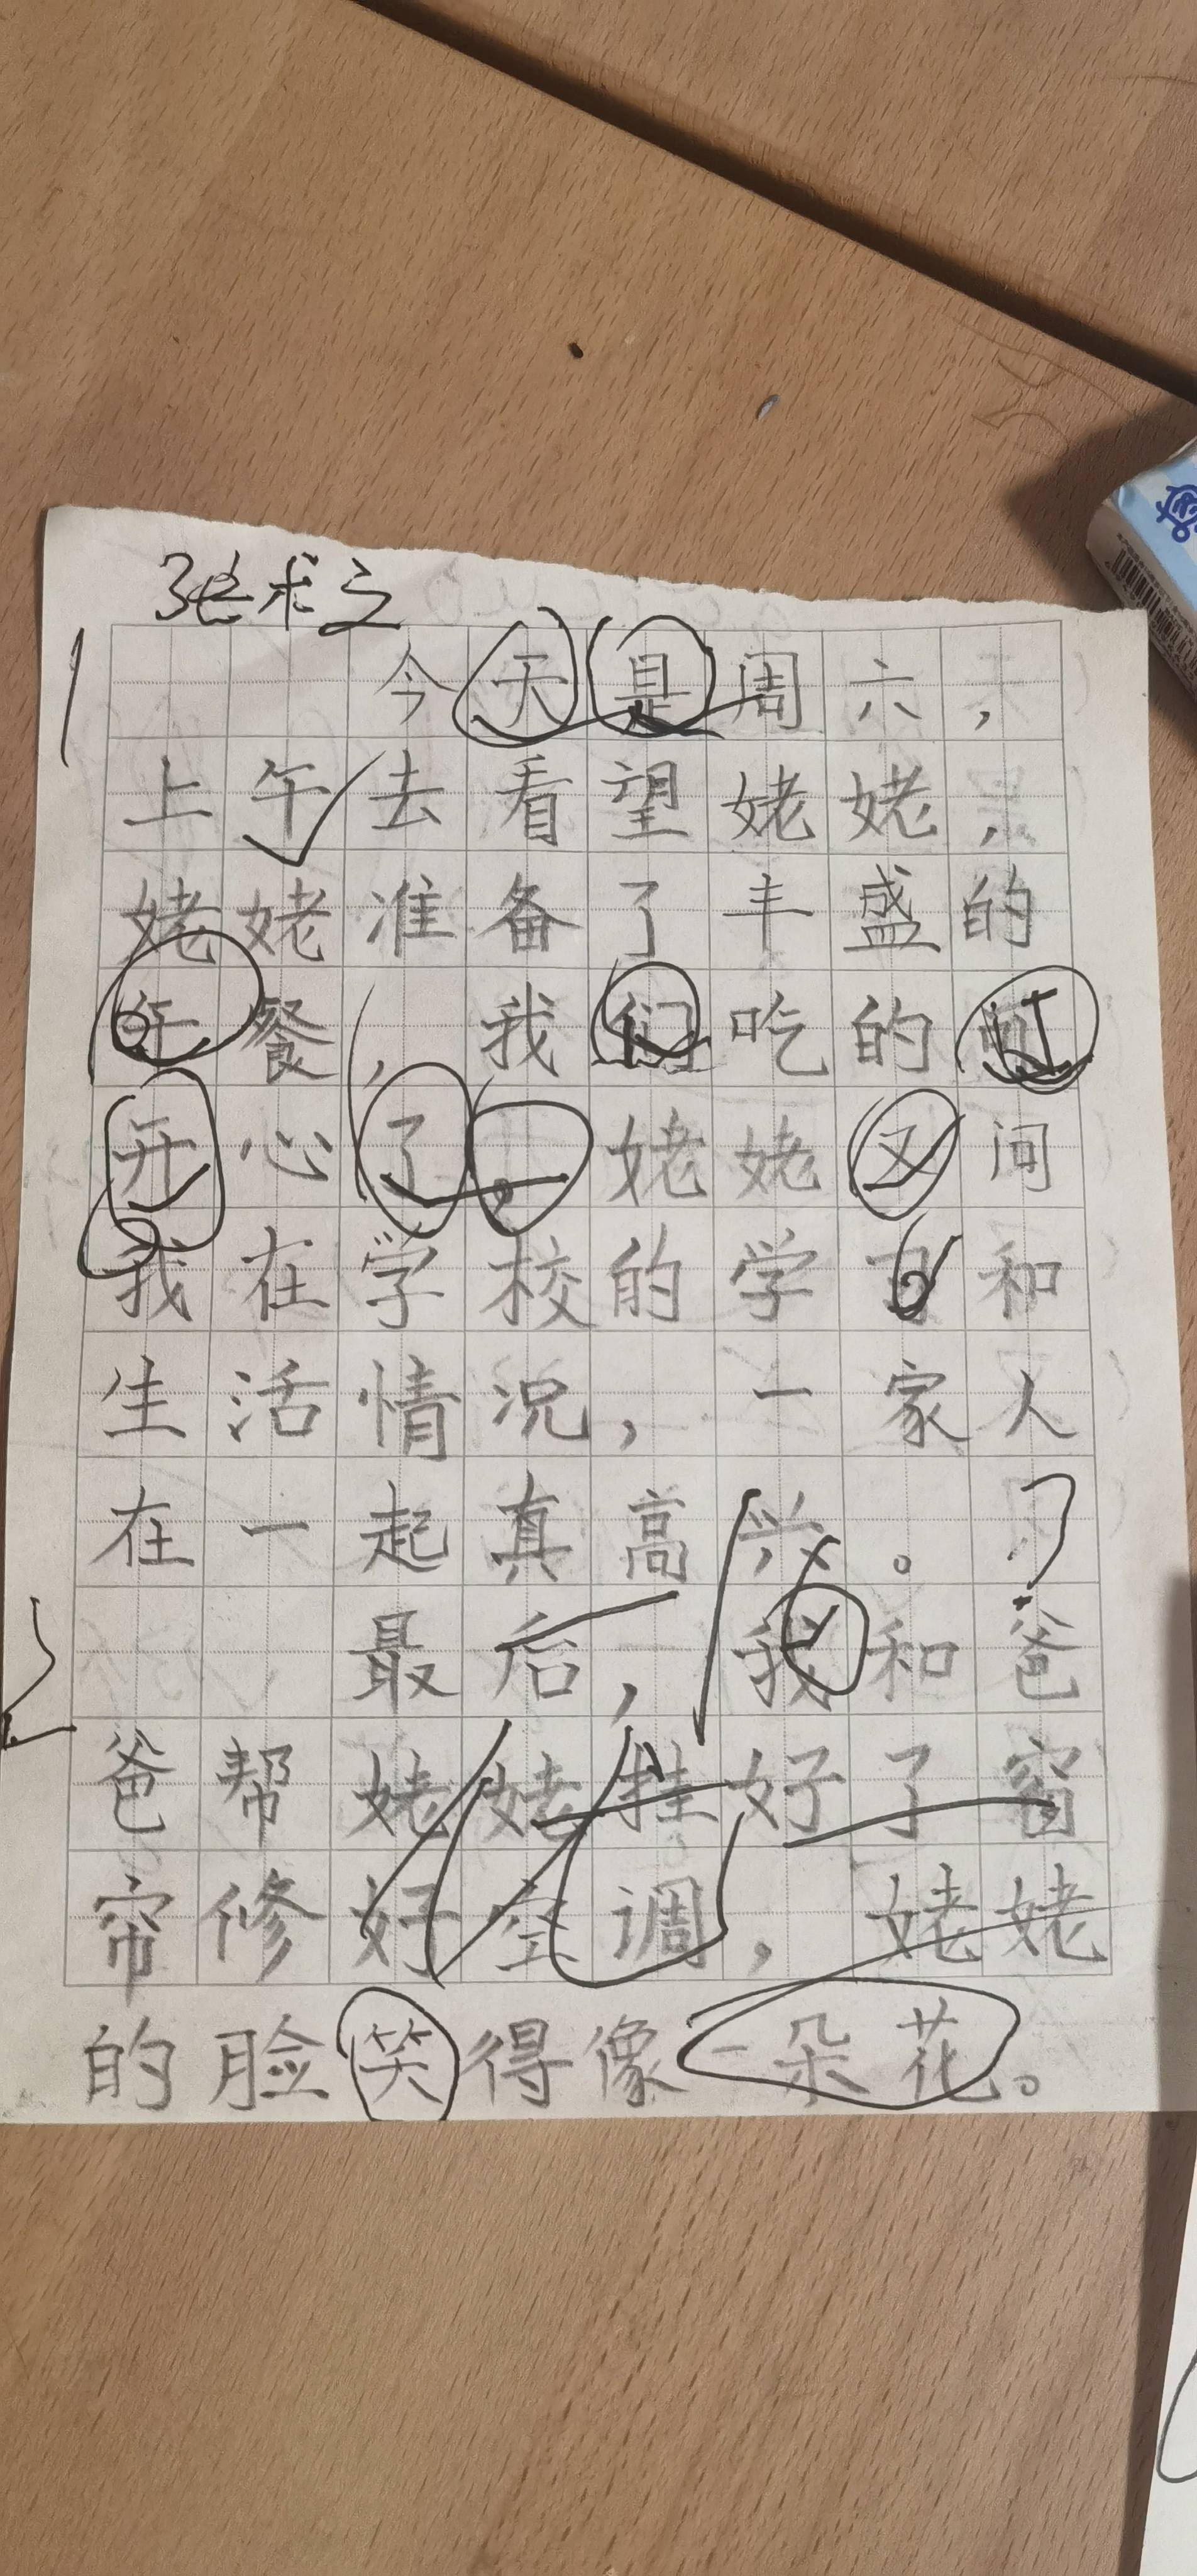 张术之
今天是周六，
上午去看望姥姥，
姥姥准备了丰盛的
午餐，我们吃的可
开心了。姥姥又问
我在学校的学习和
生活情况，一家人
在一起真高兴。
最后，我和爸
爸帮姥姥挂好了窗
帘修好空调，姥姥
的脸笑得像一朵花。